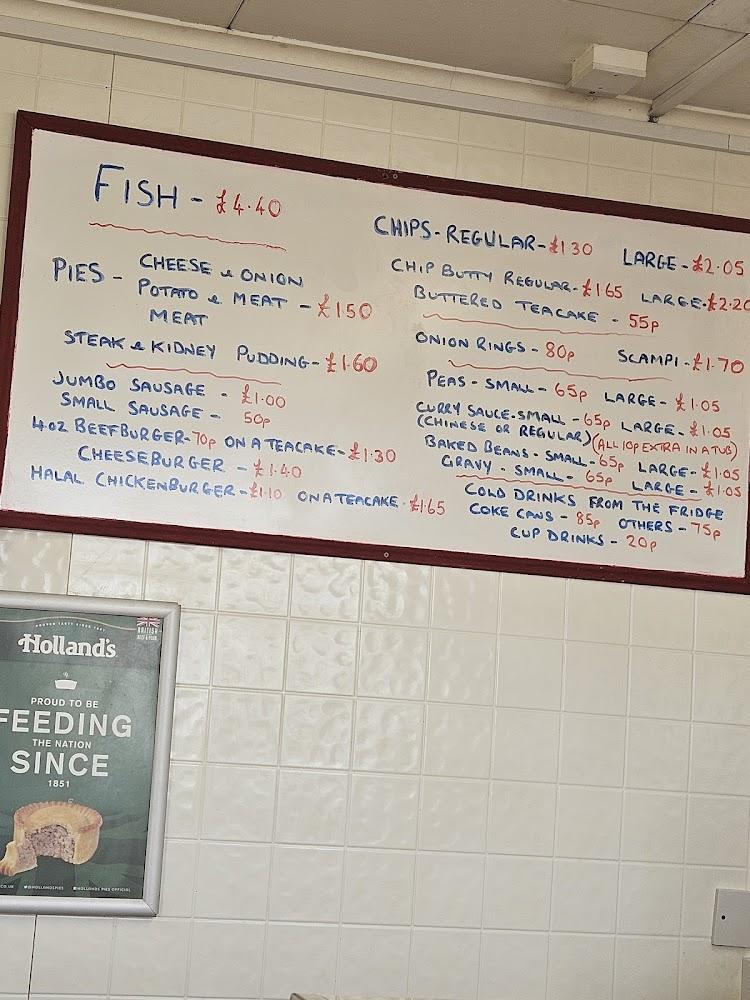 FISH - £4.40
PIES - CHEESE & ONION
POTATO & MEAT - £1.50
MEAT
STEAK & KIDNEY PUDDING - £1.60
JUMBO SAUSAGE - £1.00
SMALL SAUSAGE - 50p
4OZ BEEFBURGER - 70p ON A TEACAKE - £1.30
CHEESEBURGER - £1.40
HALAL CHICKENBURGER - £1.10 ON A TEACAKE - £1.65
CHIPS - REGULAR - £1.30 LARGE - £2.05
CHIP BUTTY REGULAR - £1.65 LARGE - £2.20
BUTTERED TEACAKE - 55p
ONION RINGS - 80p SCAMPI - £1.70
PEAS - SMALL - 65p LARGE - £1.05
CURRY SAUCE - SMALL - 65p LARGE - £1.05
(CHINESE OR REGULAR) (ALL 10p EXTRA IN A TUB)
BAKED BEANS - SMALL - 65p LARGE - £1.05
GRAVY - SMALL - 65p LARGE - £1.05
COLD DRINKS FROM THE FRIDGE
COKE CANS - 85p OTHERS - 75p
CUP DRINKS - 20p
PROPER TASTY SINCE 1851
Holland's
BRITISH
BEEF & PORK
PROUD TO BE
FEEDING
THE NATION
SINCE
1851
CO.UK @HOLLANDSPIES HOLLANDS PIES OFFICIAL